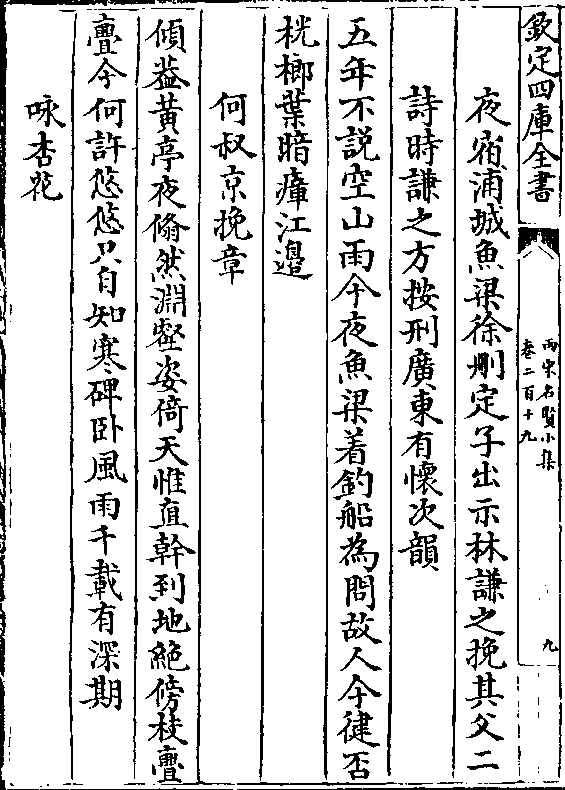 欽定四庫全書
兩宋名賢小集
卷二百十九
九
夜宿浦城魚梁徐刪定子出示林謙之挽其父二
詩時謙之方按刑廣東有懷次韻
五年不説空山雨今夜魚梁着釣船為問故人今健否
桄榔葉暗瘴江邉
何叔京挽章
傾蓋黃亭夜翛然淵壑姿倚天惟直幹到地絶傍枝亹
亹今何許悠悠只自知寒碑卧風雨千載有深期
咏杏花